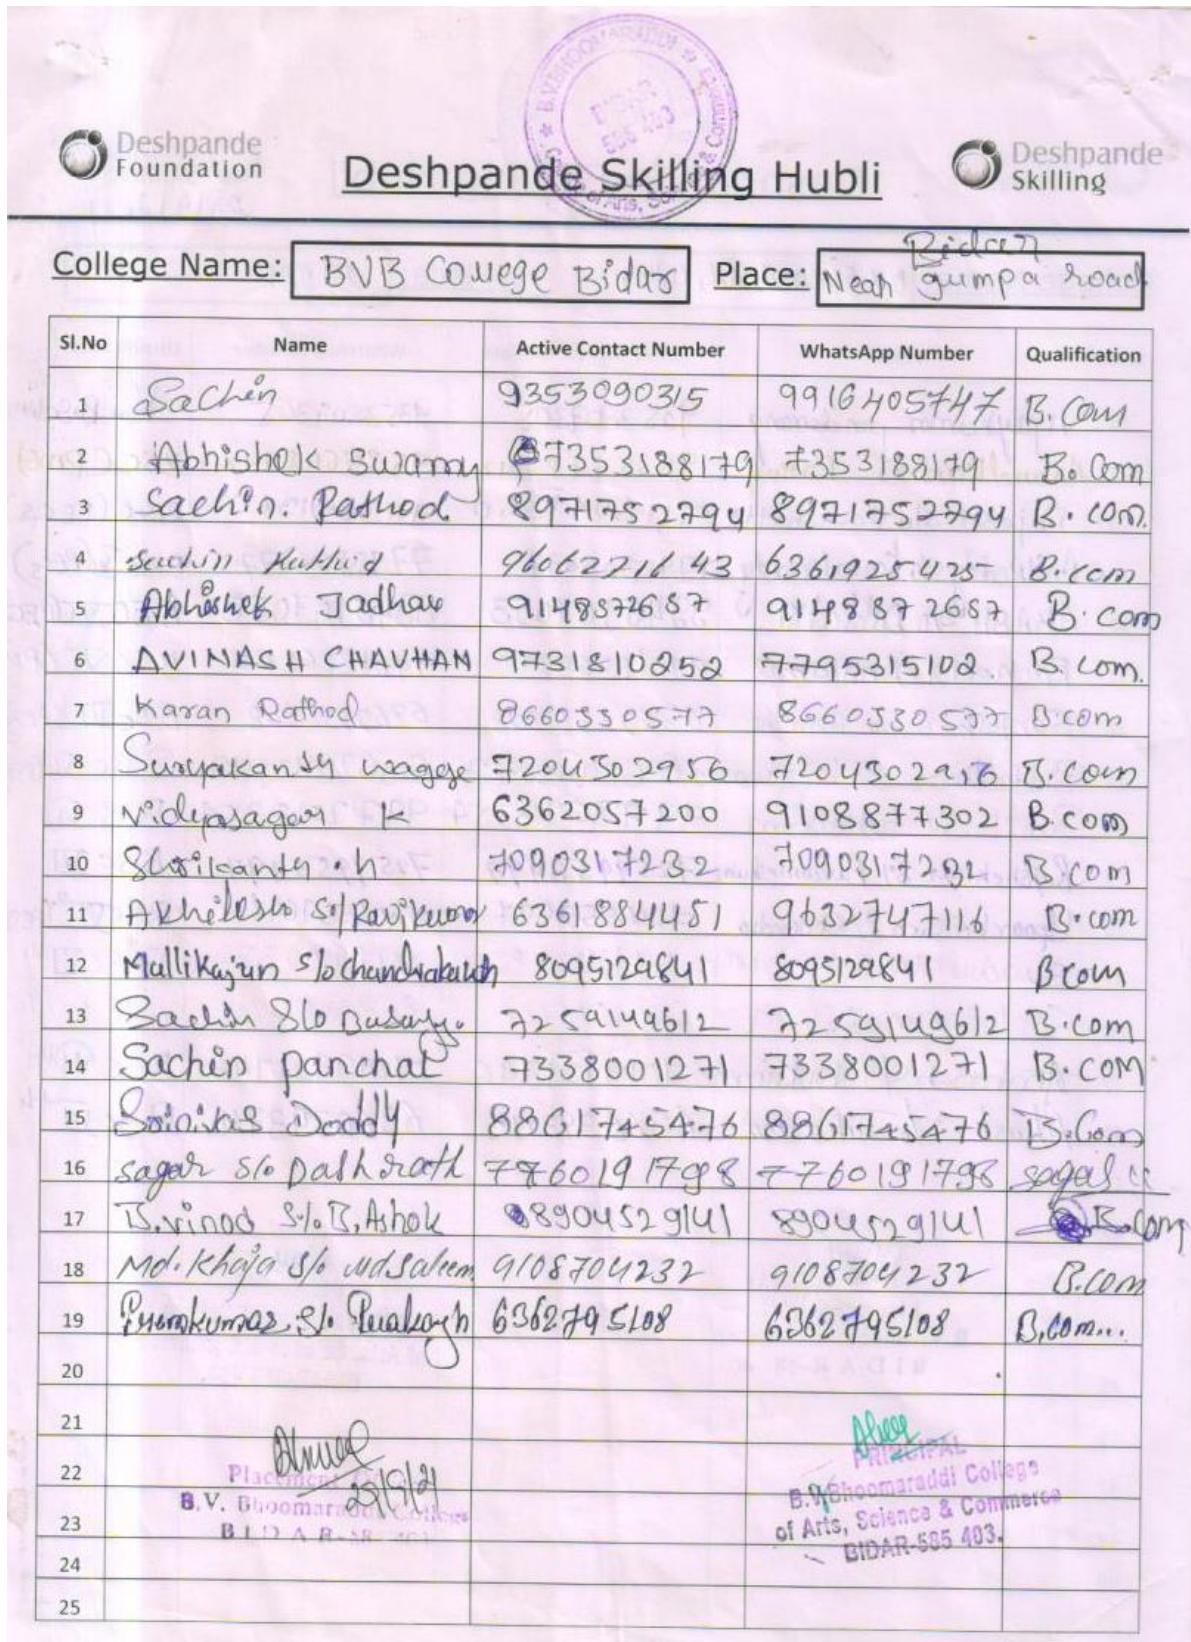 B.V.BHOOMARADDI
BIDAR
585 403
College of Arts, Science & Commerce
Deshpande
Foundation
Deshpande Skilling Hubli
Deshpande
Skilling
College Name: BVB College Bidar Place: Bidar
Near gumpa road
Sl.No Name Active Contact Number WhatsApp Number Qualification
1 Sachin 9353090315 9916405747 B.Com
2 Abhishek Swamy 7353188179 7353188179 B.Com
3 Sachin. Rathod 8971752794 8971752794 B.com.
4 Sachin Rathod 9606221643 6361925425 B.com
5 Abhishek Jadhav 9148872687 9148872687 B.com
6 AVINASH CHAVHAN 9731810252 7795315102. B.com.
7 Karan Rathod 8660330577 8660330577 B.com
8 Suryakanth wagge 7204302956 B.com
9 Vidyasagar K 6362057200 9108877302 B.com
10 Shrikanth h 7090317232 7090317232 B.com
11 Akhilesh S/o Ravikumar 6361884451 9632747116 B.com
12 Mallikajun S/o chandrakanth 8095129841 8095129841 Bcom
13 Sachin S/o 7259149612 7259149612 B.com
14 Sachin panchal 7338001271 7338001271 B.COM
15 Srinivas Doddy 8861745476 8861745476 B.Com
16 sagar S/o Dashrath 7760191798 7760191798 sagar
17 B.vinod S/o B.Ashok 8904529141 8904529141 B.com
18 Md.Khaja S/o Md Saleem 9108704232 9108704232 B.com
19 Premkumar. S/o 6362795108 6362795108 B.com...
20
21
22
23
24
25
29/9/21
Placement
B.V. Bhoomaraddi College
BIDAR-585 403
PRINCIPAL
B.V.Bhoomaraddi College
of Arts, Science & Commerce
BIDAR-585 403.